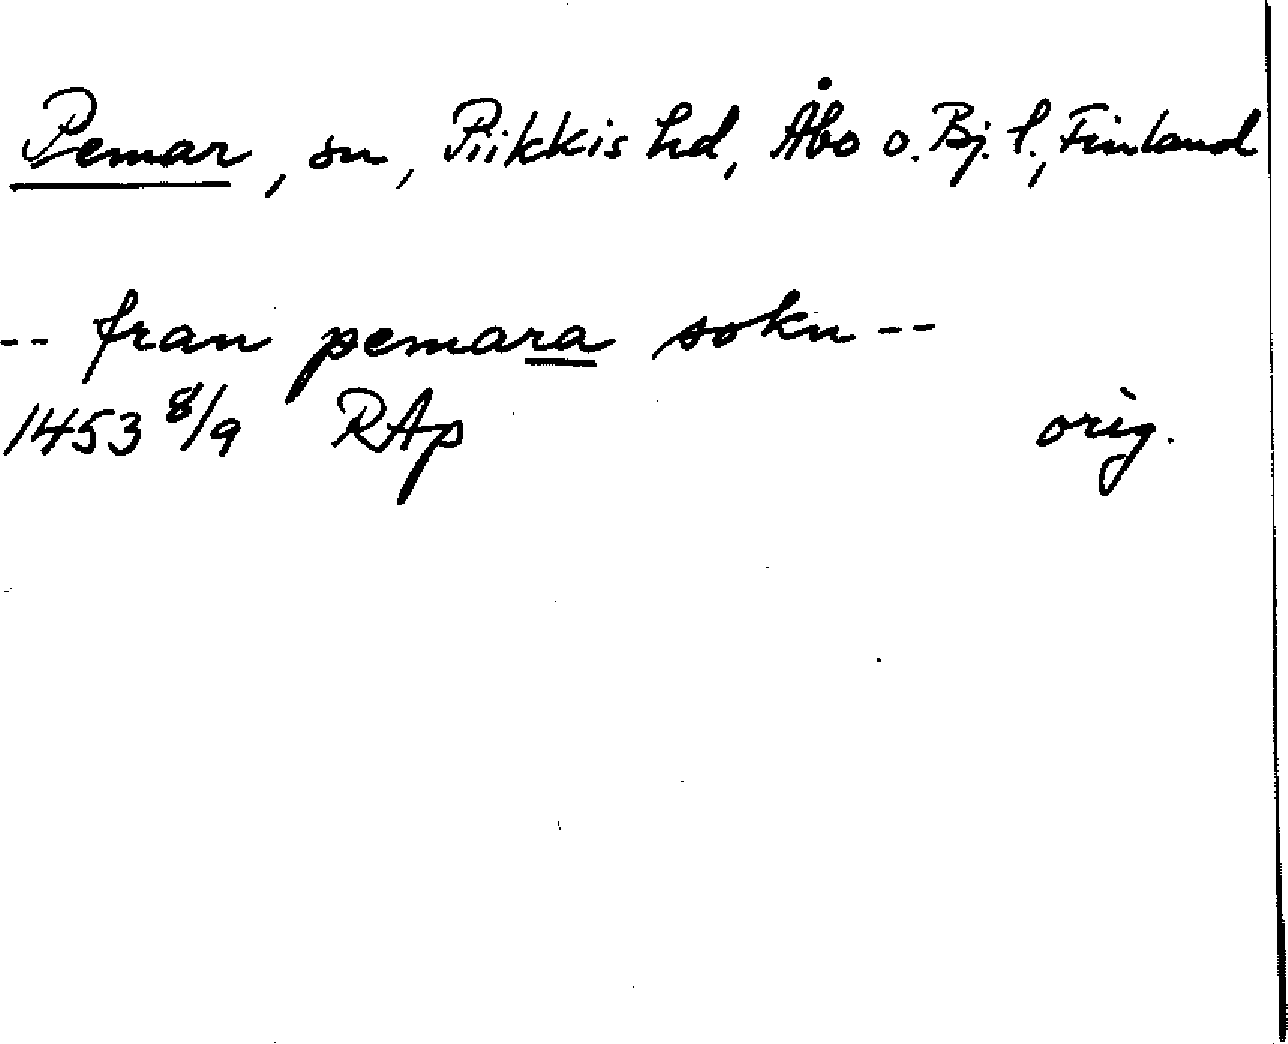 Pemar, sn, Piikkis hd, Åbo o. Bj. l., Finland
-- fran pemara sokn --
1453 8/9 RAp orig.